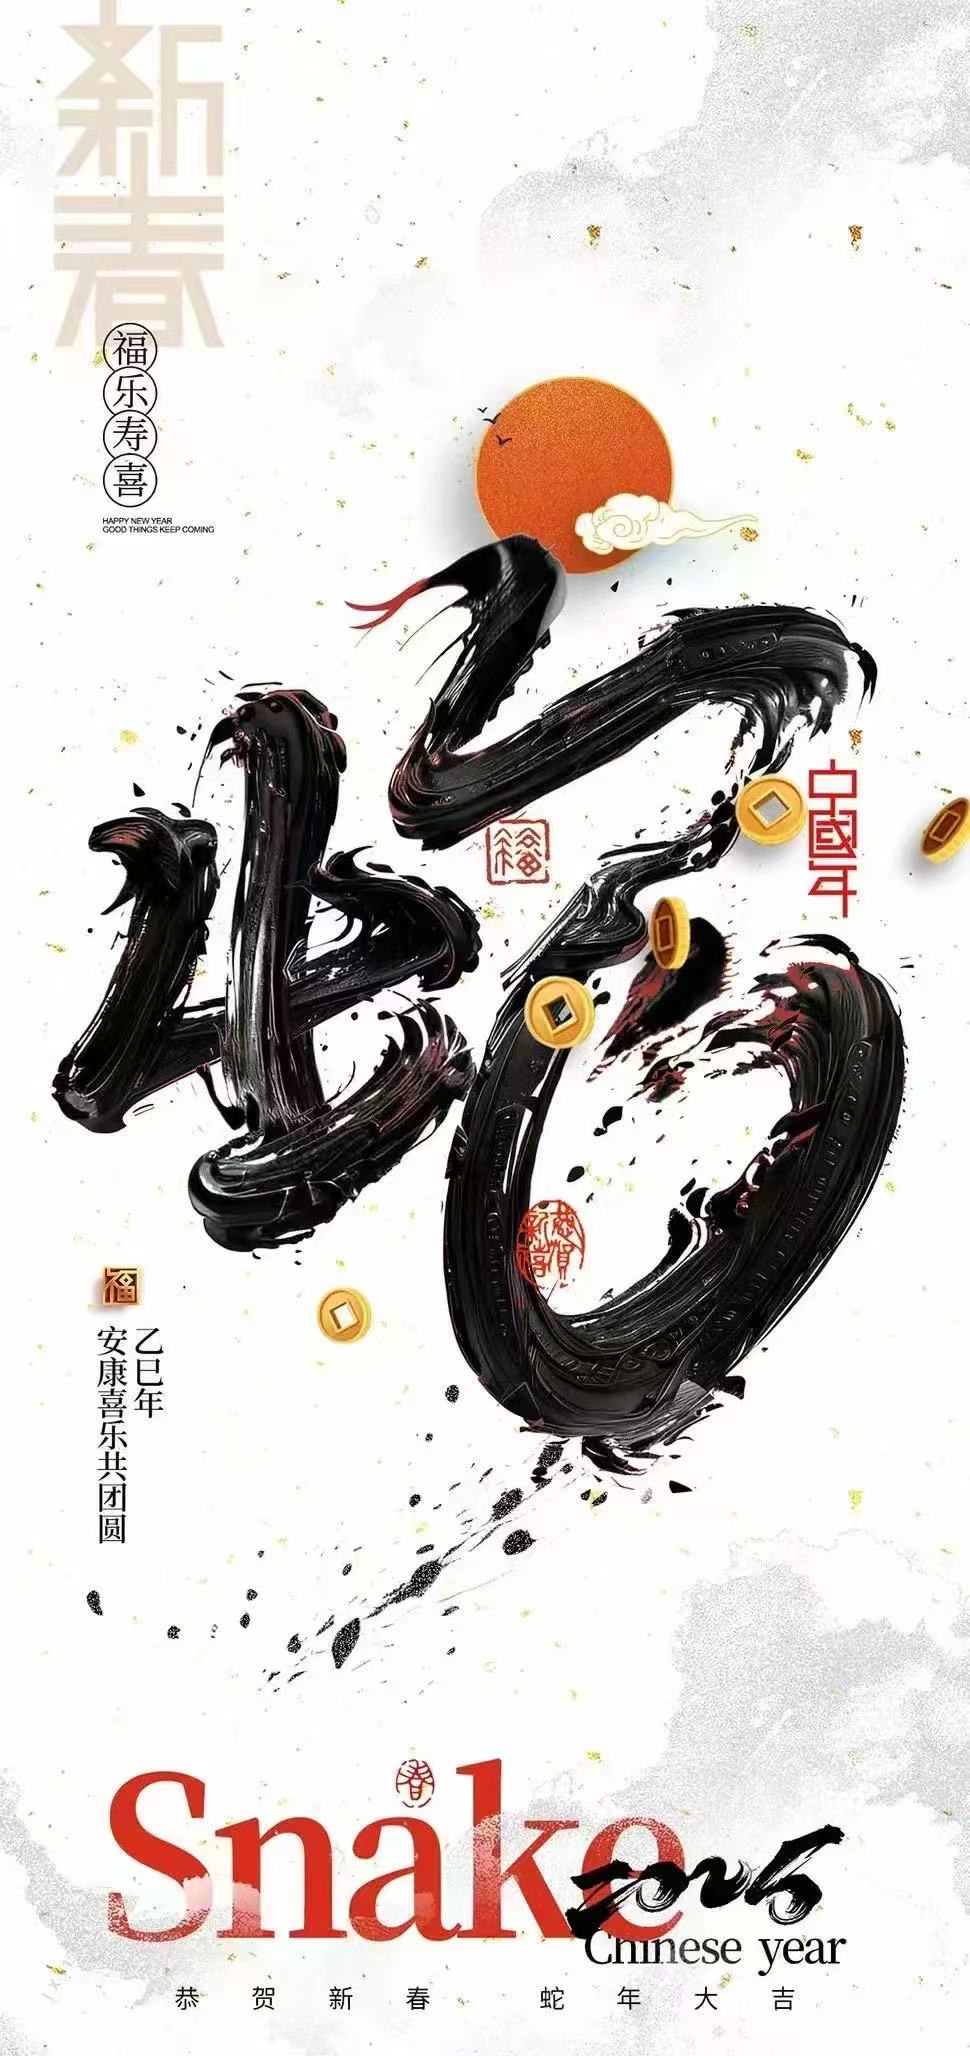 新春
福乐寿喜
HAPPY NEW YEAR
GOOD THINGS KEEP COMING
蛇
福
中國年
恭贺新禧
福
乙巳年
安康喜乐共团圆
春
Snake
2025
Chinese year
恭贺新春 蛇年大吉